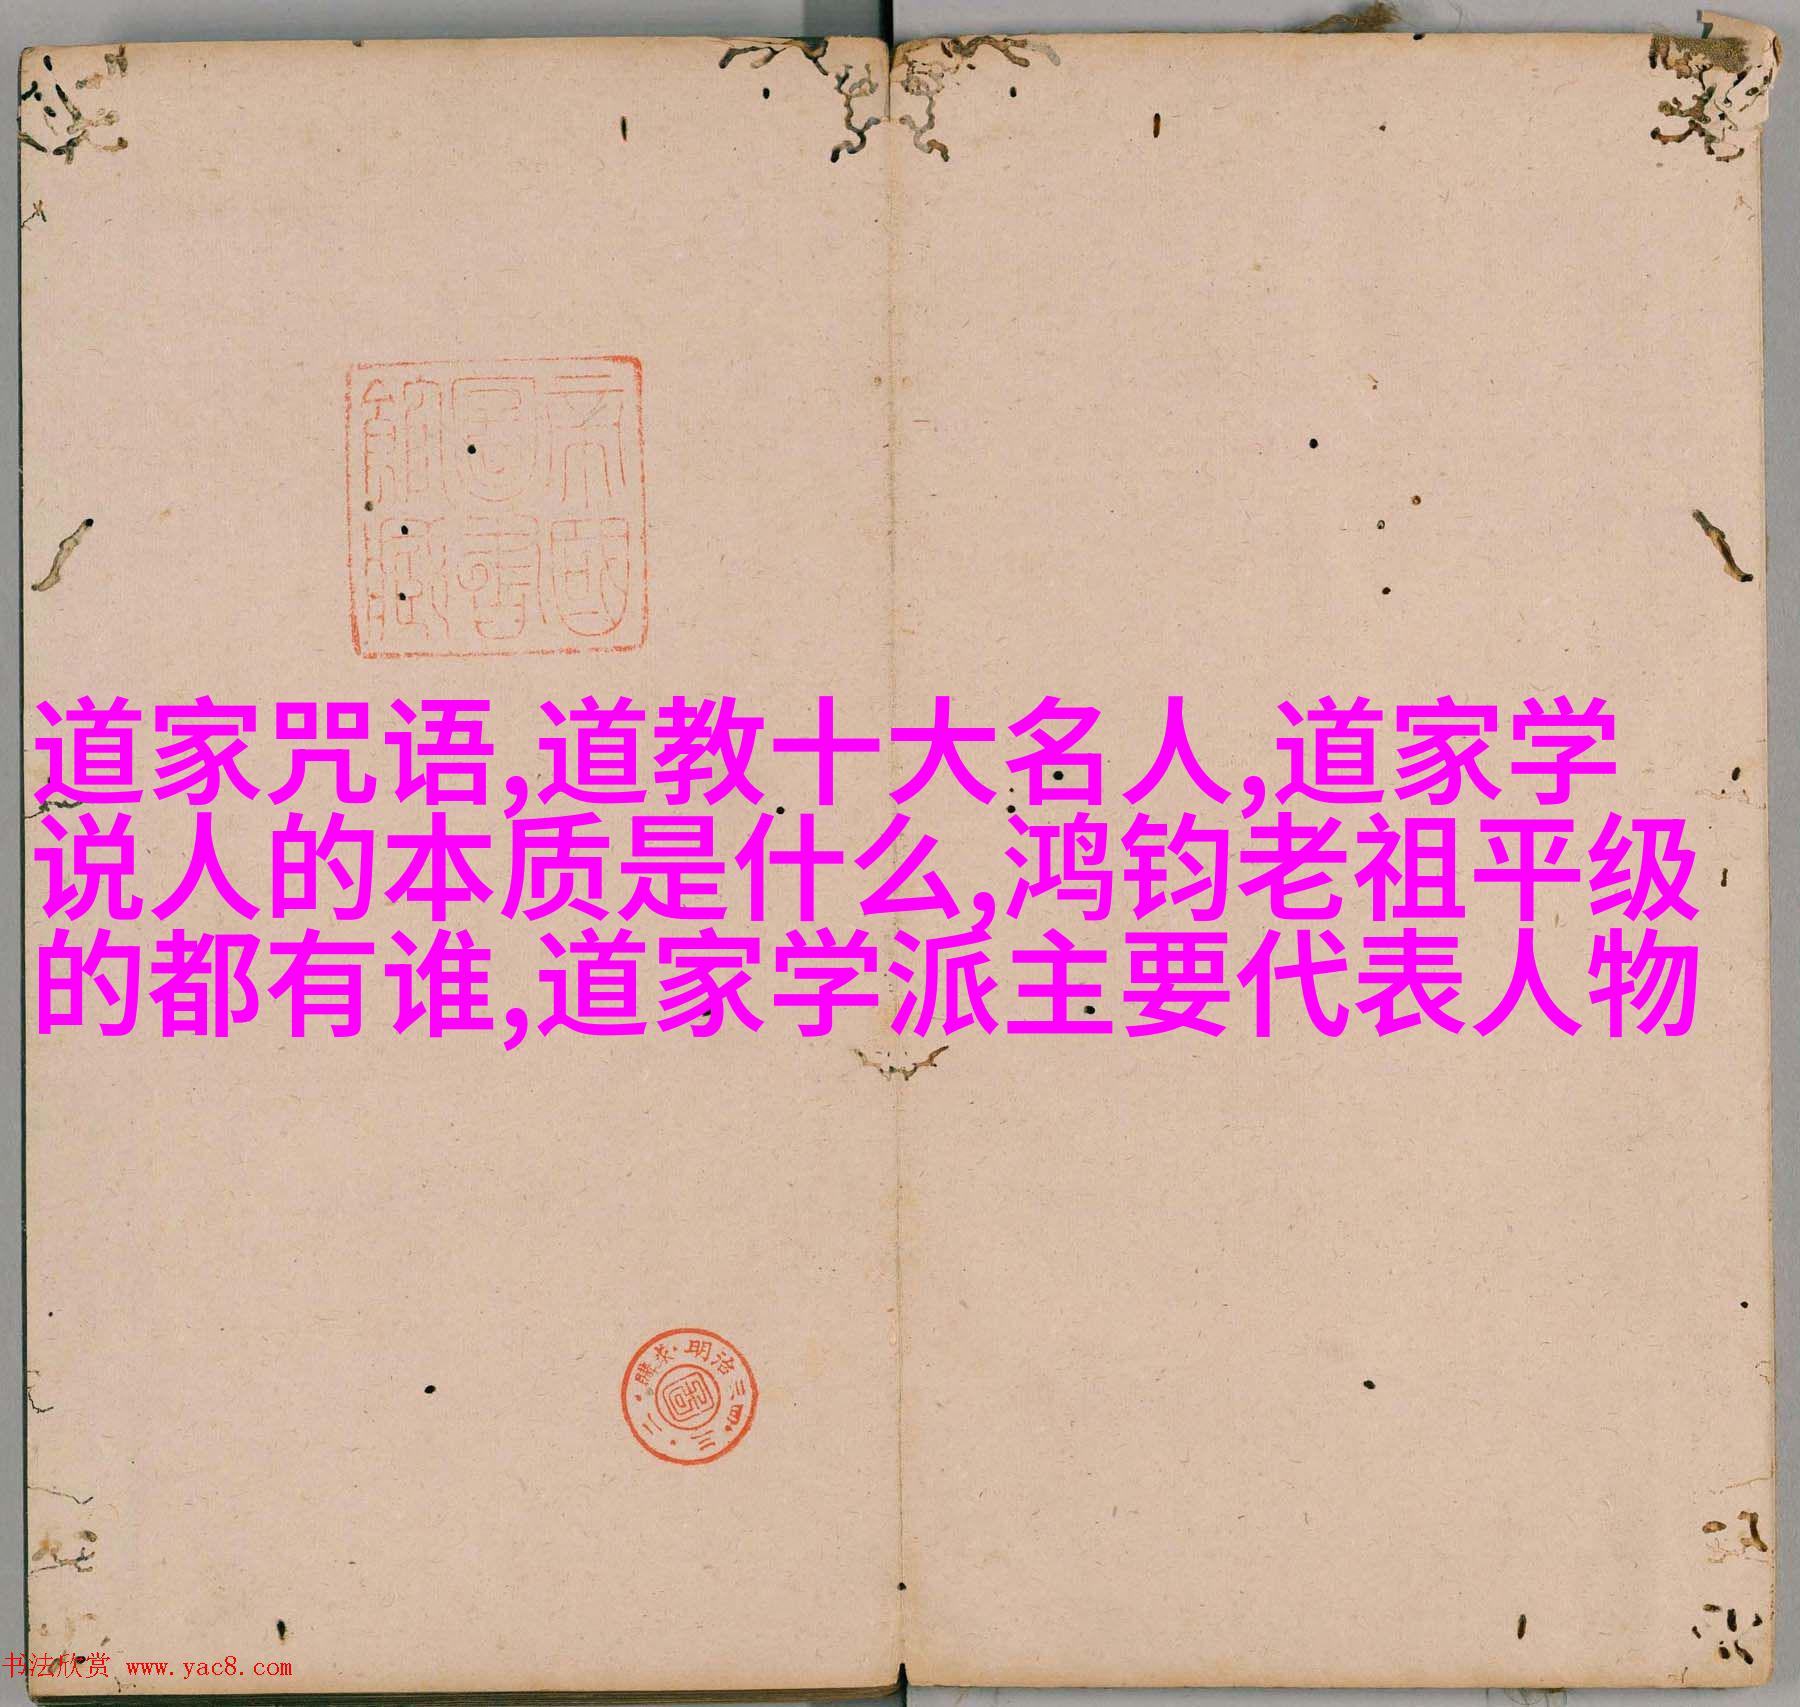 道家咒语,道教十大名人,道家学
说人的本质是什么,鸿钧老祖平级
的都有谁,道家学派主要代表人物
帝国
图书
馆藏
明治三四·三·二·購求·
书法欣赏 www.yac8.com